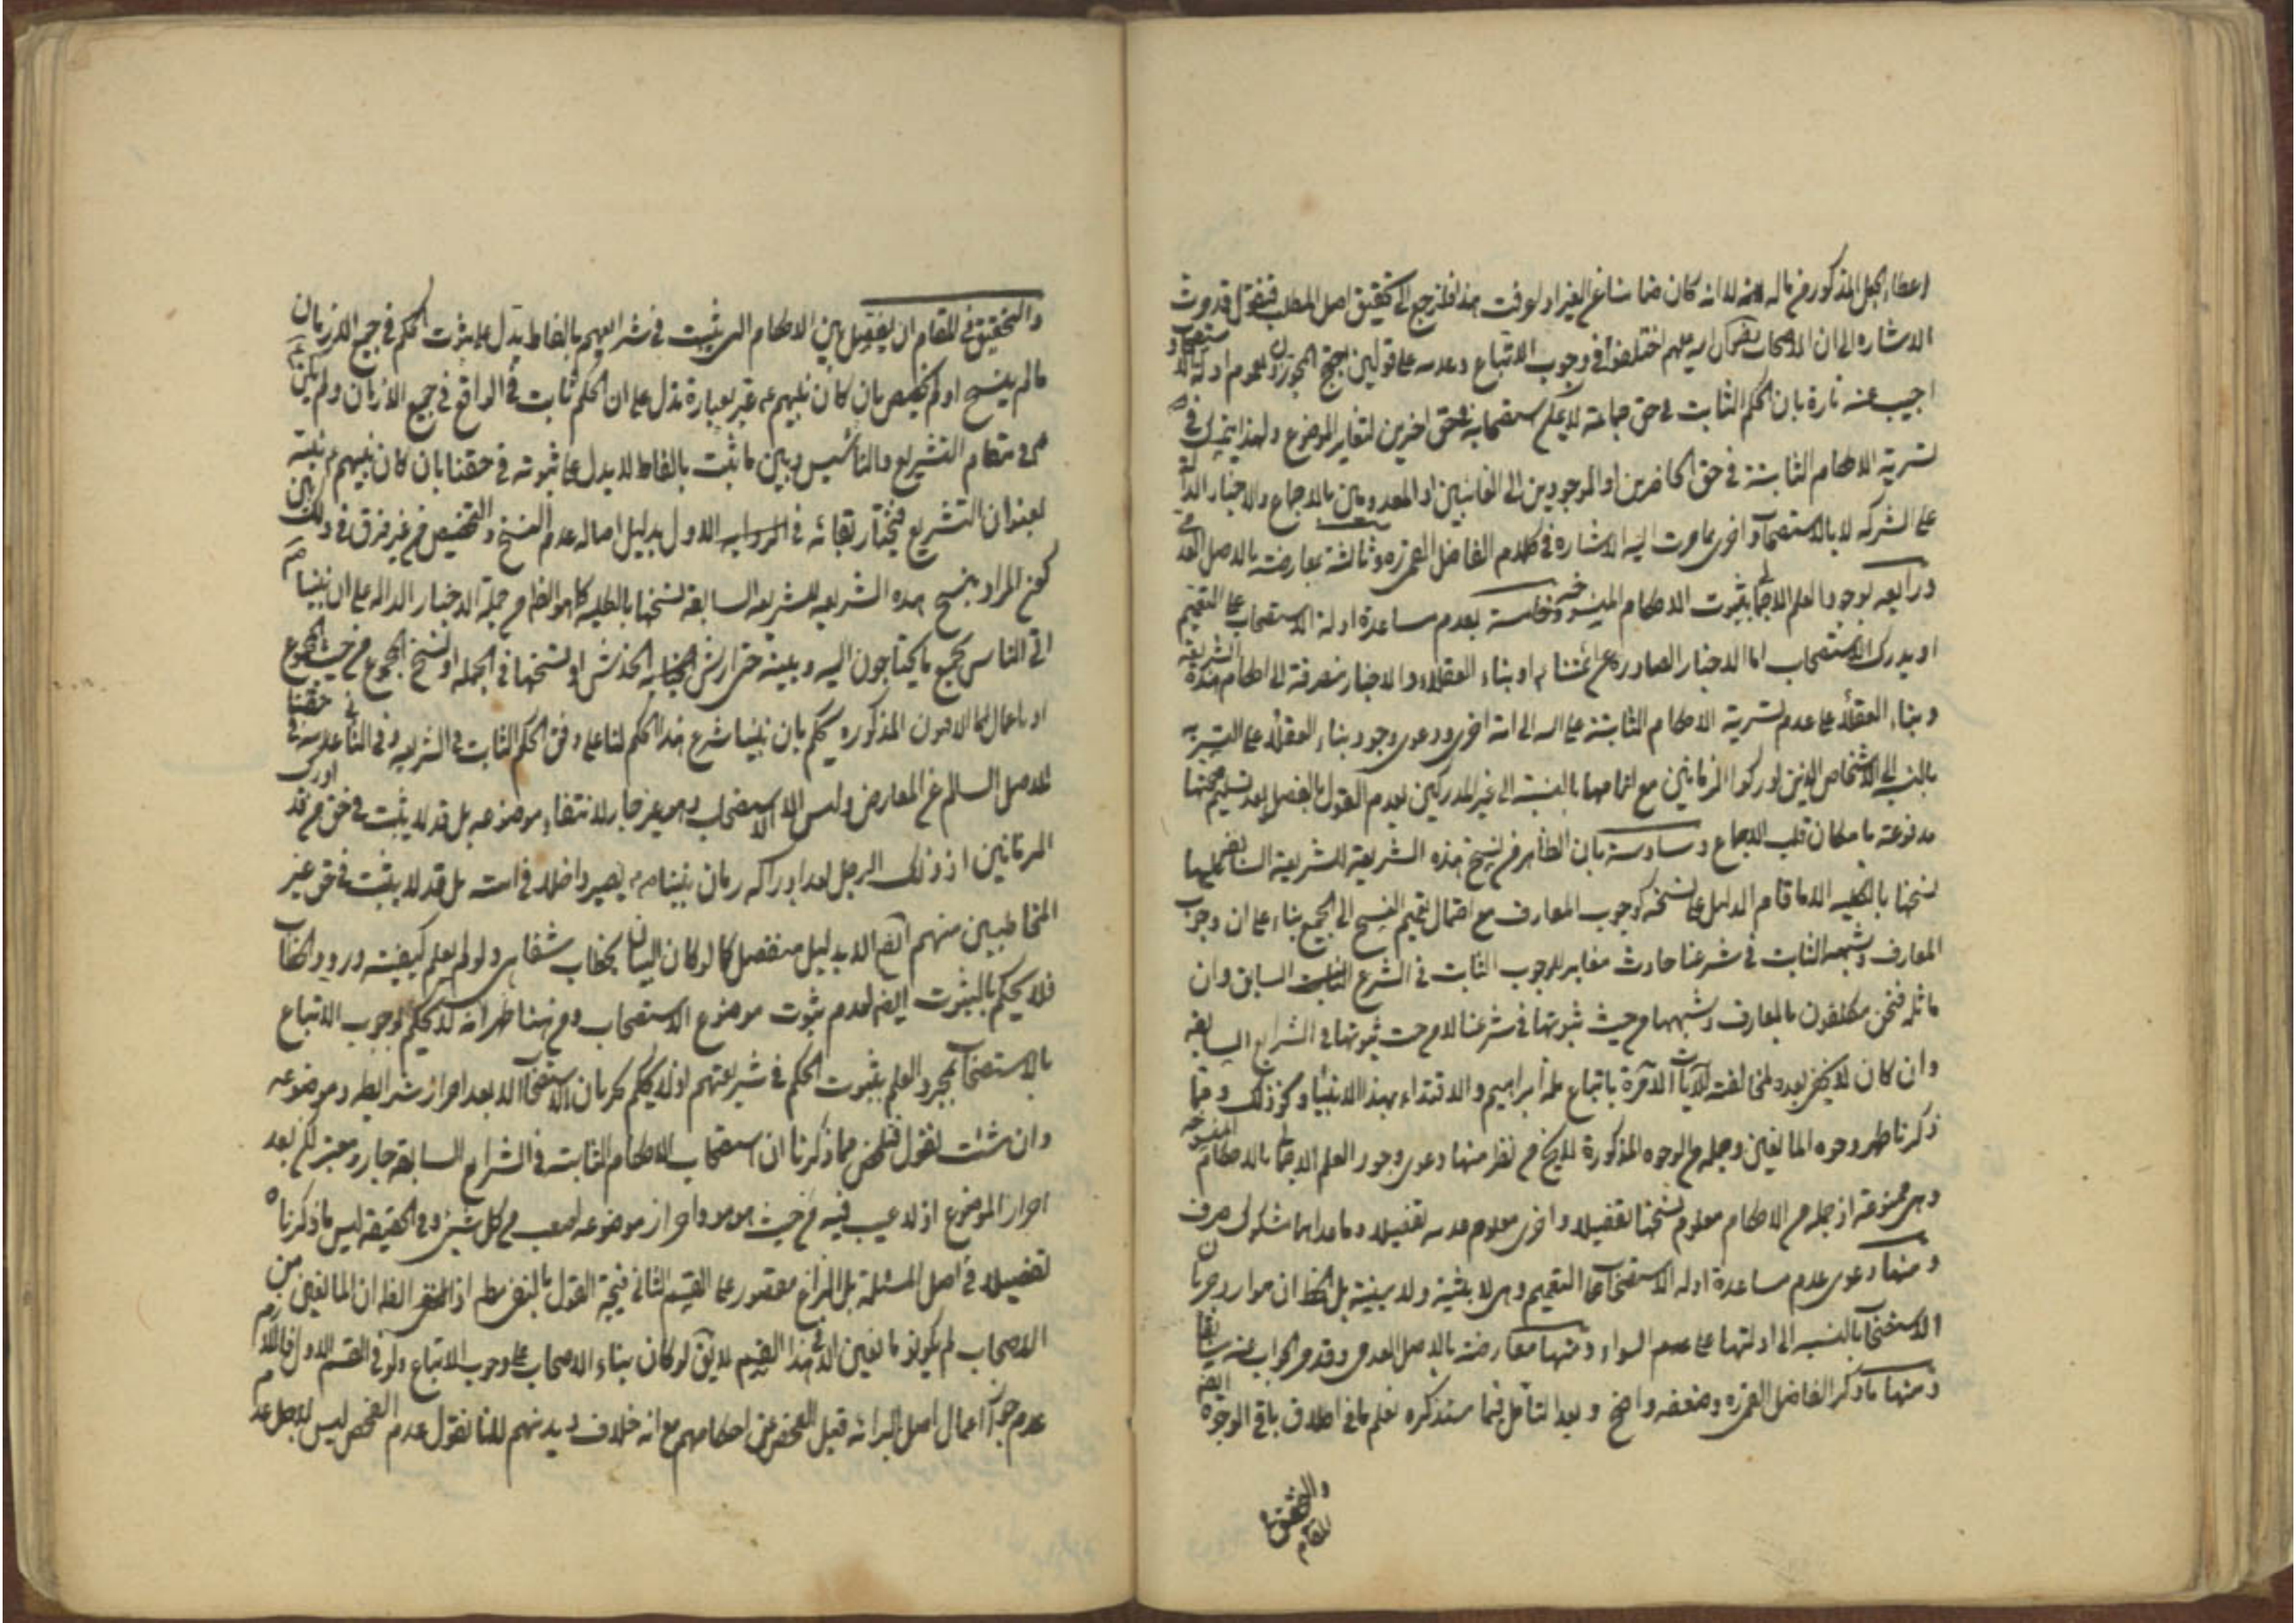 اعطاء الجعل المذكور من ماله لانه كان ضامنا شاع الغير او لوقت هذا فلنرجع الى تحقيق اصل المطلب فنقول قد مرت
الاشاره الى ان الاصحاب رضوان الله عليهم اختلفوا في وجوب الاتباع وعدمه على قولين احتج المجوزون بعموم ادلة الاستصحاب و
اجيب عنه تارة بان الحكم الثابت في حق جماعة لا يمكن استصحابه في حق اخرين لتغاير الموضوع ولهذا يتمسك في
تسرية الاحكام الثابتة في حق الحاضرين او الموجودين الى الغائبين او المعدومين بالاجماع والاخبار الدالة
على الشركه لا بالاستصحاب واخرى بما مرت اليه الاشاره في كلام الفاضل القمى ره وثالثة بمعارضته بالاصل العدمي
ورابعه بوجود العلم الاجمالي بثبوت الاحكام المنسوخه وخامسة بعدم مساعدة ادلة الاستصحاب على التعميم
او مدرك الاستصحاب اما الاخبار الصادره عن ائمتنا او بناء العقلاء والاخبار منصرفة الى احكام هذه الشريعه
وبناء العقلاء على عدم تسرية الاحكام الثابتة على امة الى امة اخرى ودعوى وجود بناء العقلاء على التسرية
بالنسبه الى الاشخاص الذين ادركوا الزمانين مع اتمامها بالنسبة الى غير المدركين بعدم القول بالفصل بعد تسليم صحتها
مدفوعة بامكان قلب الاجماع وسادسة بان الظاهر من نسخ هذه الشريعة للشريعة السابقه
نسخها بالكليه الا ما قام الدليل على نسخه كوجوب المعارف مع احتمال تعميم النسخ الى الجميع بناء على ان وجوب
المعارف وشبهه الثابت في شرعنا حادث مغاير للوجوب الثابت في الشرع السابق وان
ماثله فنحن مكلفون بالمعارف وشبهها من حيث ثبوتها في شرعنا لا من حيث ثبوتها في الشرايع السابقه
وان كان لا يخفى بعده لمخالفته للايات الآمرة باتباع ملة ابراهيم والاقتداء بهذا الانبياء وكذلك ومما
ذكرنا ظهر وجوه المانعين وجملة من الوجوه المذكورة لا يخ من نظر منها دعوى وجود العلم الاجمالي بالاحكام المنسوخه
وهى ممنوعة اذ جملة من الاحكام معلوم نسخها تفصيلا واخرى معلوم عدمه تفصيلا وما عداهما مشكوك صرف
ومنها دعوى عدم مساعدة ادلة الاستصحاب على التعميم وهى لا بينة ولا مبينة بل الظ ان موارد جريان
الاستصحاب بالنسبه الى ادلتها على حد السواء ومنها معارضته بالاصل العدمى وقد مر الجواب عنه سابقا
ومنها ما ذكره الفاضل القمى ره وضعفه واضح وبعد التأمل فيما سنذكره تعلم ما في اطلاق باقى الوجوه ايضا
والتحقيق في المقام
والتحقيق في المقام ان يفصل بين الاحكام التى ثبتت في شرايعهم بالفاظ يدل على ثبوت الحكم في جميع الازمان
ما لم ينسخ او لم يخصص بان كان نبيهم عبر بعبارة تدل على ان الحكم ثابت في الواقع في جميع الازمان ولم يكن
هو في مقام التشريع والتأسيس وبين ما ثبت بالفاظ لا يدل على ثبوته في حقنا بان كان نبيهم بينه
بعنوان التشريع فنختار بقائه في الاول بدليل اصالة عدم النسخ والتخصيص من غير فرق في ذلك بين
كون المراد بنسخ هذه الشريعه للشريعه السابقة نسخها بالكليه كما هو الظاهر من جملة الاخبار الداله على ان نبينا ص
اتى الناس بجميع ما يحتاجون اليه وبينه حتى ارش الخدش او نسخها في الجمله او نسخ المجموع من حيث المجموع
او باعمال الاصول المذكوره يحكم بان نبينا شرع هذا الحكم لنا على وفق الحكم الثابت في الشريعه وفي الثانى عدمه في حقنا
للاصل السالم عن المعارض وليس الا الاستصحاب وهو غير جار لانتفاء موضوعه بل قد لا يثبت في حق من قد ادرك
الزمانين اذ ذلك الرجل بعد ادراكه زمان نبينا ص يصير داخلا في امته بل قد لا يثبت في حق غير
المخاطبين منهم ايضا الا بدليل منفصل كما لو كان البيان بخطاب شفاهى ولو لم يعلم كيفيته ورود الخطاب
فلا يحكم بالثبوت ايضا لعدم ثبوت موضوع الاستصحاب ومن هنا ظهر انه لا يحكم بوجوب الاتباع
بالاستصحاب بمجرد العلم بثبوت الحكم في شريعتهم اذ لا يحكم بجريان الاستصحاب الا بعد احراز شرايطه وموضوعه
وان شئت فقول فتلخص مما ذكرنا ان استصحاب الاحكام الثابته في الشرايع السابقة جار ومعتبر لكن بعد
احراز الموضوع اذ لا عيب فيه من حيث هو هو واحراز موضوعه اصعب من كل شيئ وفى الحقيقة ليس ما ذكرناه
تفصيلا في اصل المسئلة بل النزاع مقصور على القسم الثانى فنتيجة القول بالنفى مط اذ الظ ان المانعين من
الاصحاب لم يكونوا مانعين الا في هذا القسم لا يق لو كان بناء الاصحاب على وجوب الاتباع ولو في القسم الاول فاللازم
عدم جواز اعمال اصل البرائه قبل الفحص عن احكامهم مع انه خلاف ديدنهم لانا نقول عدم الفحص ليس لاجل عدم